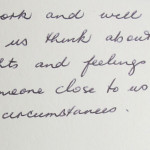 ork and well
us think about
ts and feelings
meone close to us
circumstances.